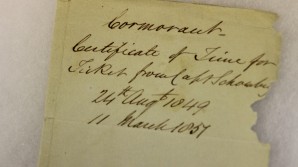 Cormorant
Certificate of Time for
Ticket from Capt Schomby
24th Augt 1849
11 March 1851